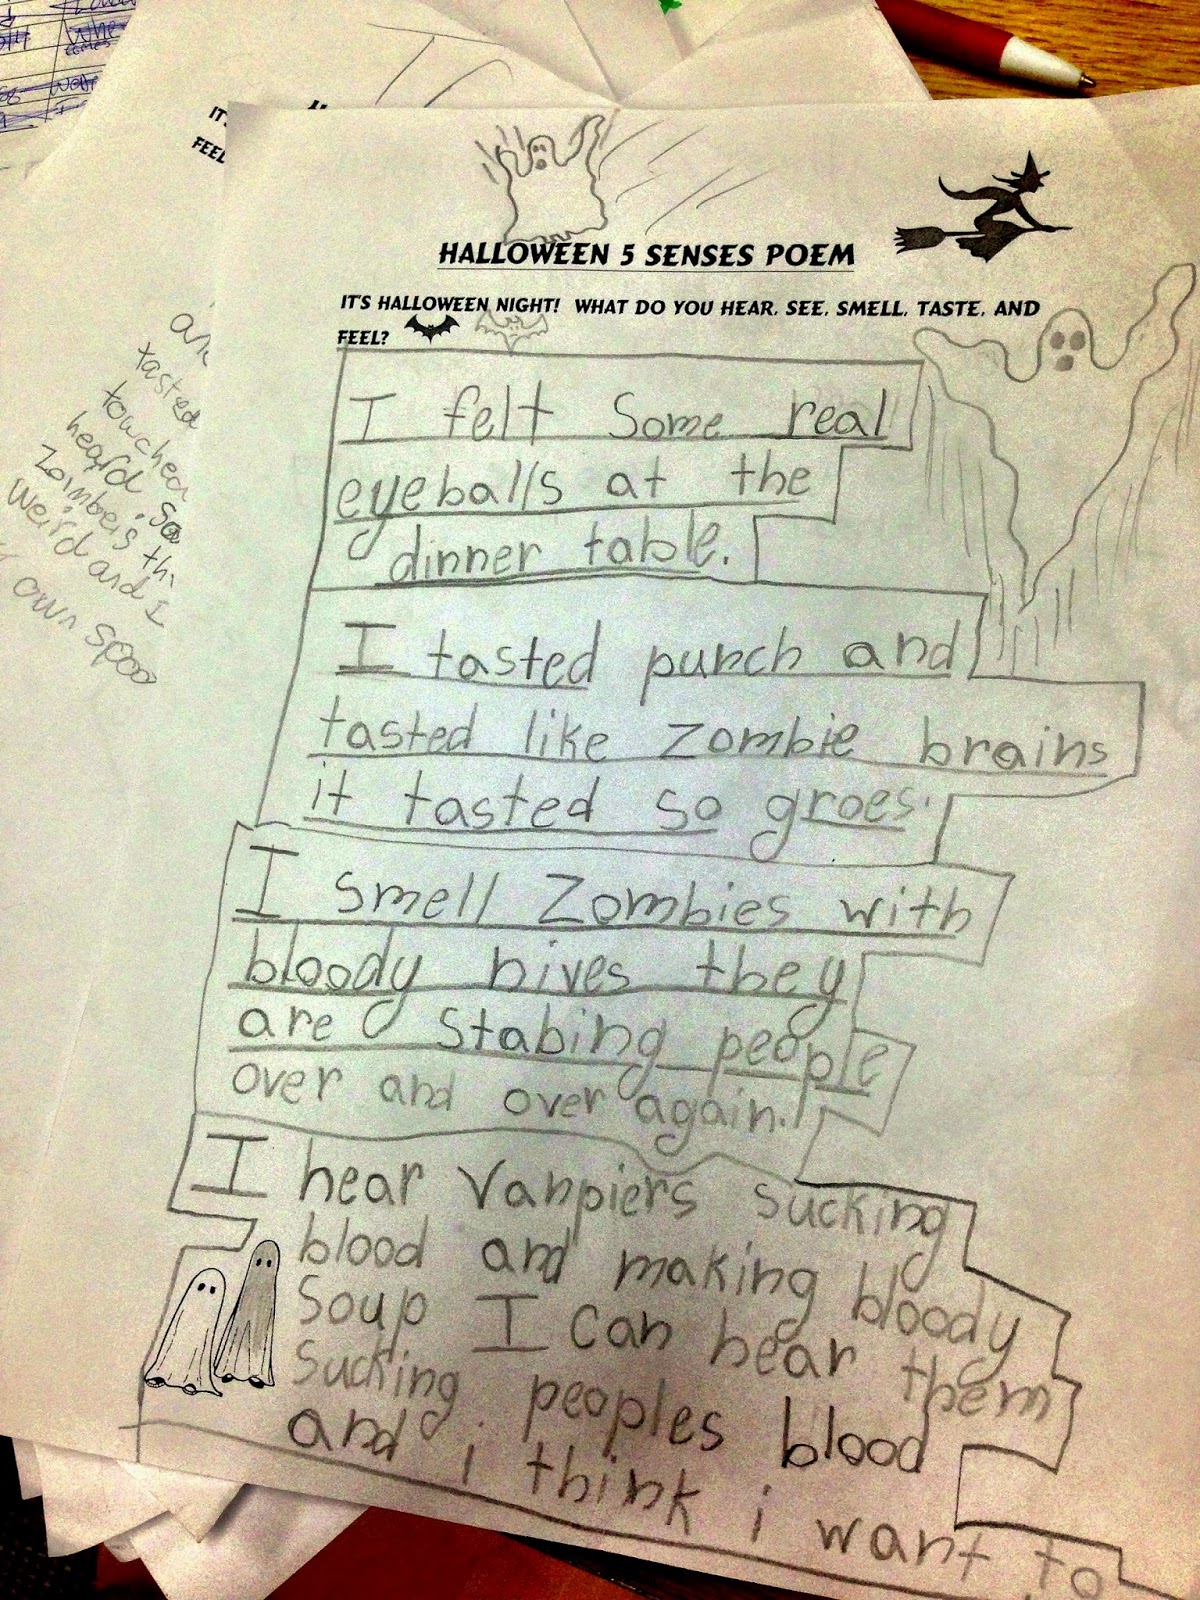 HALLOWEEN 5 SENSES POEM
IT'S HALLOWEEN NIGHT! WHAT DO YOU HEAR, SEE, SMELL, TASTE, AND
FEEL?
I felt Some real
eyeballs at the
dinner table.
I tasted punch and
tasted like Zombie brains
it tasted so groes.
I smell Zombies with
bloody nives they
are Stabing people
over and over again.
I hear Vanpiers sucking
blood and making bloody
Soup I can hear them
Sucking peoples blood
and i think i want to
FEEL
tasted
heard. So
Zombeis
weird and I
own spoo